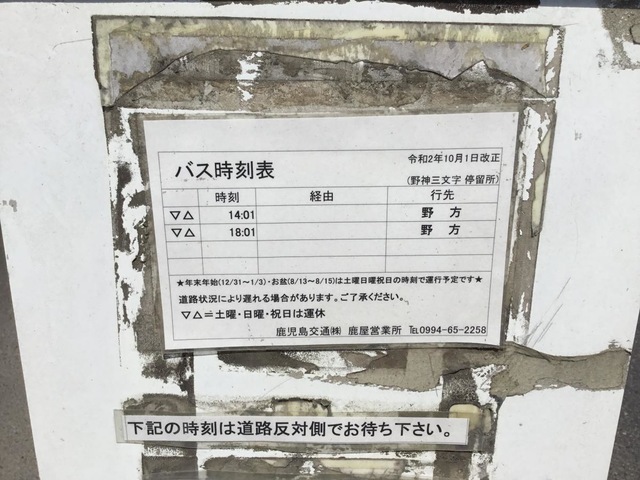 バス時刻表 令和2年10月1日改正
(野神三文字 停留所)
時刻 経由 行先
▽△ 14:01 野 方
▽△ 18:01 野 方
★年末年始(12/31～1/3)・お盆(8/13～8/15)は土曜日曜祝日の時刻で運行予定です★
道路状況により遅れる場合があります。ご了承ください。
▽△＝土曜・日曜・祝日は運休
鹿児島交通㈱ 鹿屋営業所 ℡0994-65-2258
下記の時刻は道路反対側でお待ち下さい。